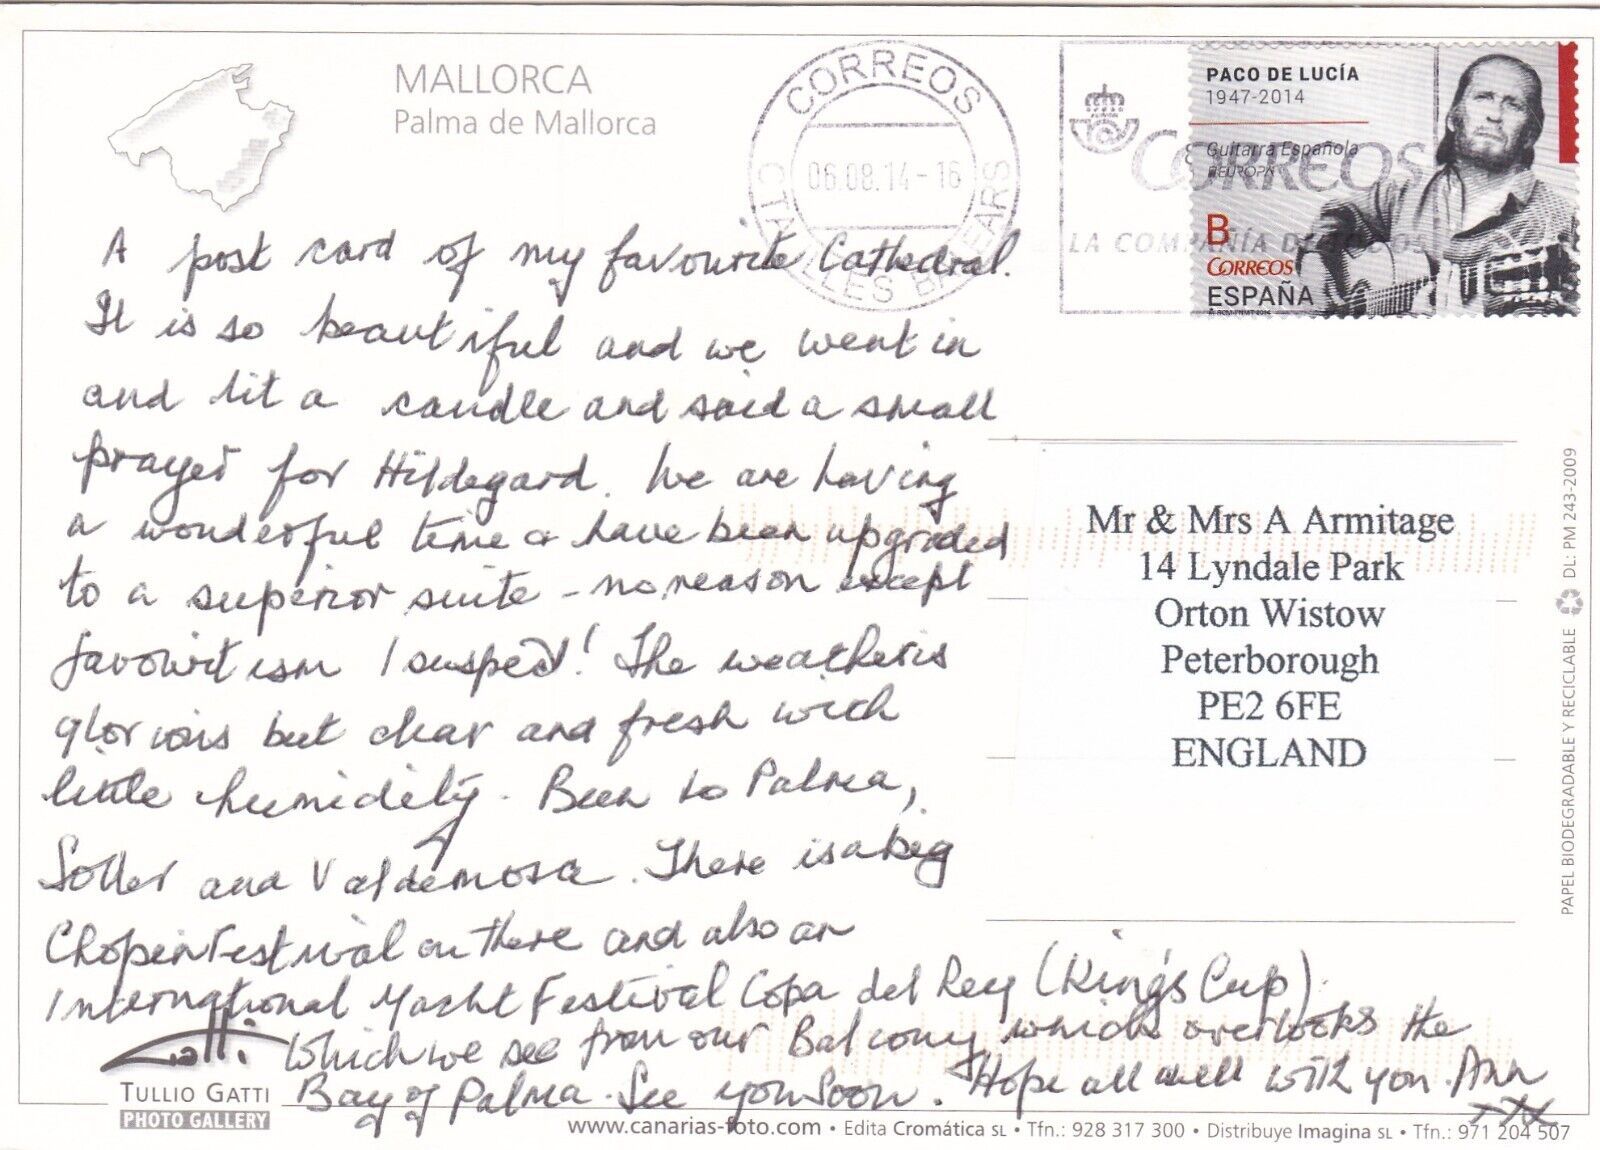 MALLORCA
Palma de Mallorca
CORREOS
06.08.14-16
CTA ILLES BALEARS
CORREOS
LA COMPAÑÍA DE TODOS
PACO DE LUCÍA
1947-2014
Guitarra Española
EUROPA
B
CORREOS
ESPAÑA
A post card of my favourite Cathedral.
It is so beautiful and we went in
and lit a candle and said a small
prayer for Hildegard. We are having
a wonderful time & have been upgraded
to a superior suite - no reason except
favouritism I suspect! The weather is
glorious but clear and fresh with
little humidity. Been to Palma,
Soller and Valdemosa. There is a big
Chopin Festival on there and also an
International Yacht Festival Copa del Rey (King's Cup).
Which we see from our Balcony which overlooks the
Bay of Palma. See you soon. Hope all well with you. Ann
XXX
Mr & Mrs A Armitage
14 Lyndale Park
Orton Wistow
Peterborough
PE2 6FE
ENGLAND
PAPEL BIODEGRADABLE Y RECICLABLE DL: PM 243-2009
Gatti
TULLIO GATTI
PHOTO GALLERY
www.canarias-foto.com • Edita Cromática SL • Tfn.: 928 317 300 • Distribuye Imagina SL • Tfn.: 971 204 507